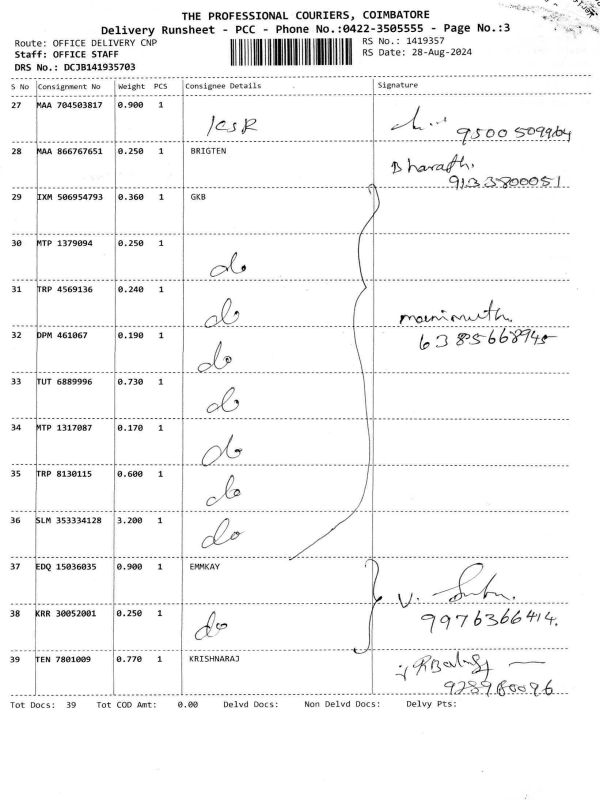 THE PROFESSIONAL COURIERS, COIMBATORE
Delivery Runsheet - PCC - Phone No.:0422-3505555 - Page No.:3
Route: OFFICE DELIVERY CNP
RS No.: 1419357
Staff: OFFICE STAFF
RS Date: 28-Aug-2024
DRS No.: DCJB141935703
S No Consignment No Weight PCS Consignee Details Signature
27 MAA 704503817 0.900 1
KSR
9500509964
28 MAA 866767651 0.250 1 BRIGTEN
Bharath.
9133800051
29 IXM 506954793 0.360 1 GKB
30 MTP 1379094 0.250 1
do
31 TRP 4569136 0.240 1
do manimuth.
32 DPM 461067 0.190 1
6385668945
do
33 TUT 6889996 0.730 1
do
34 MTP 1317087 0.170 1
do
35 TRP 8130115 0.600 1
do
36 SLM 353334128 3.200 1
do
37 EDQ 15036035 0.900 1 EMMKAY
V.
38 KRR 30052001 0.250 1
9976366414.
do
39 TEN 7801009 0.770 1 KRISHNARAJ
Tot Docs: 39 Tot COD Amt: 0.00 Delvd Docs: Non Delvd Docs: Delvy Pts: